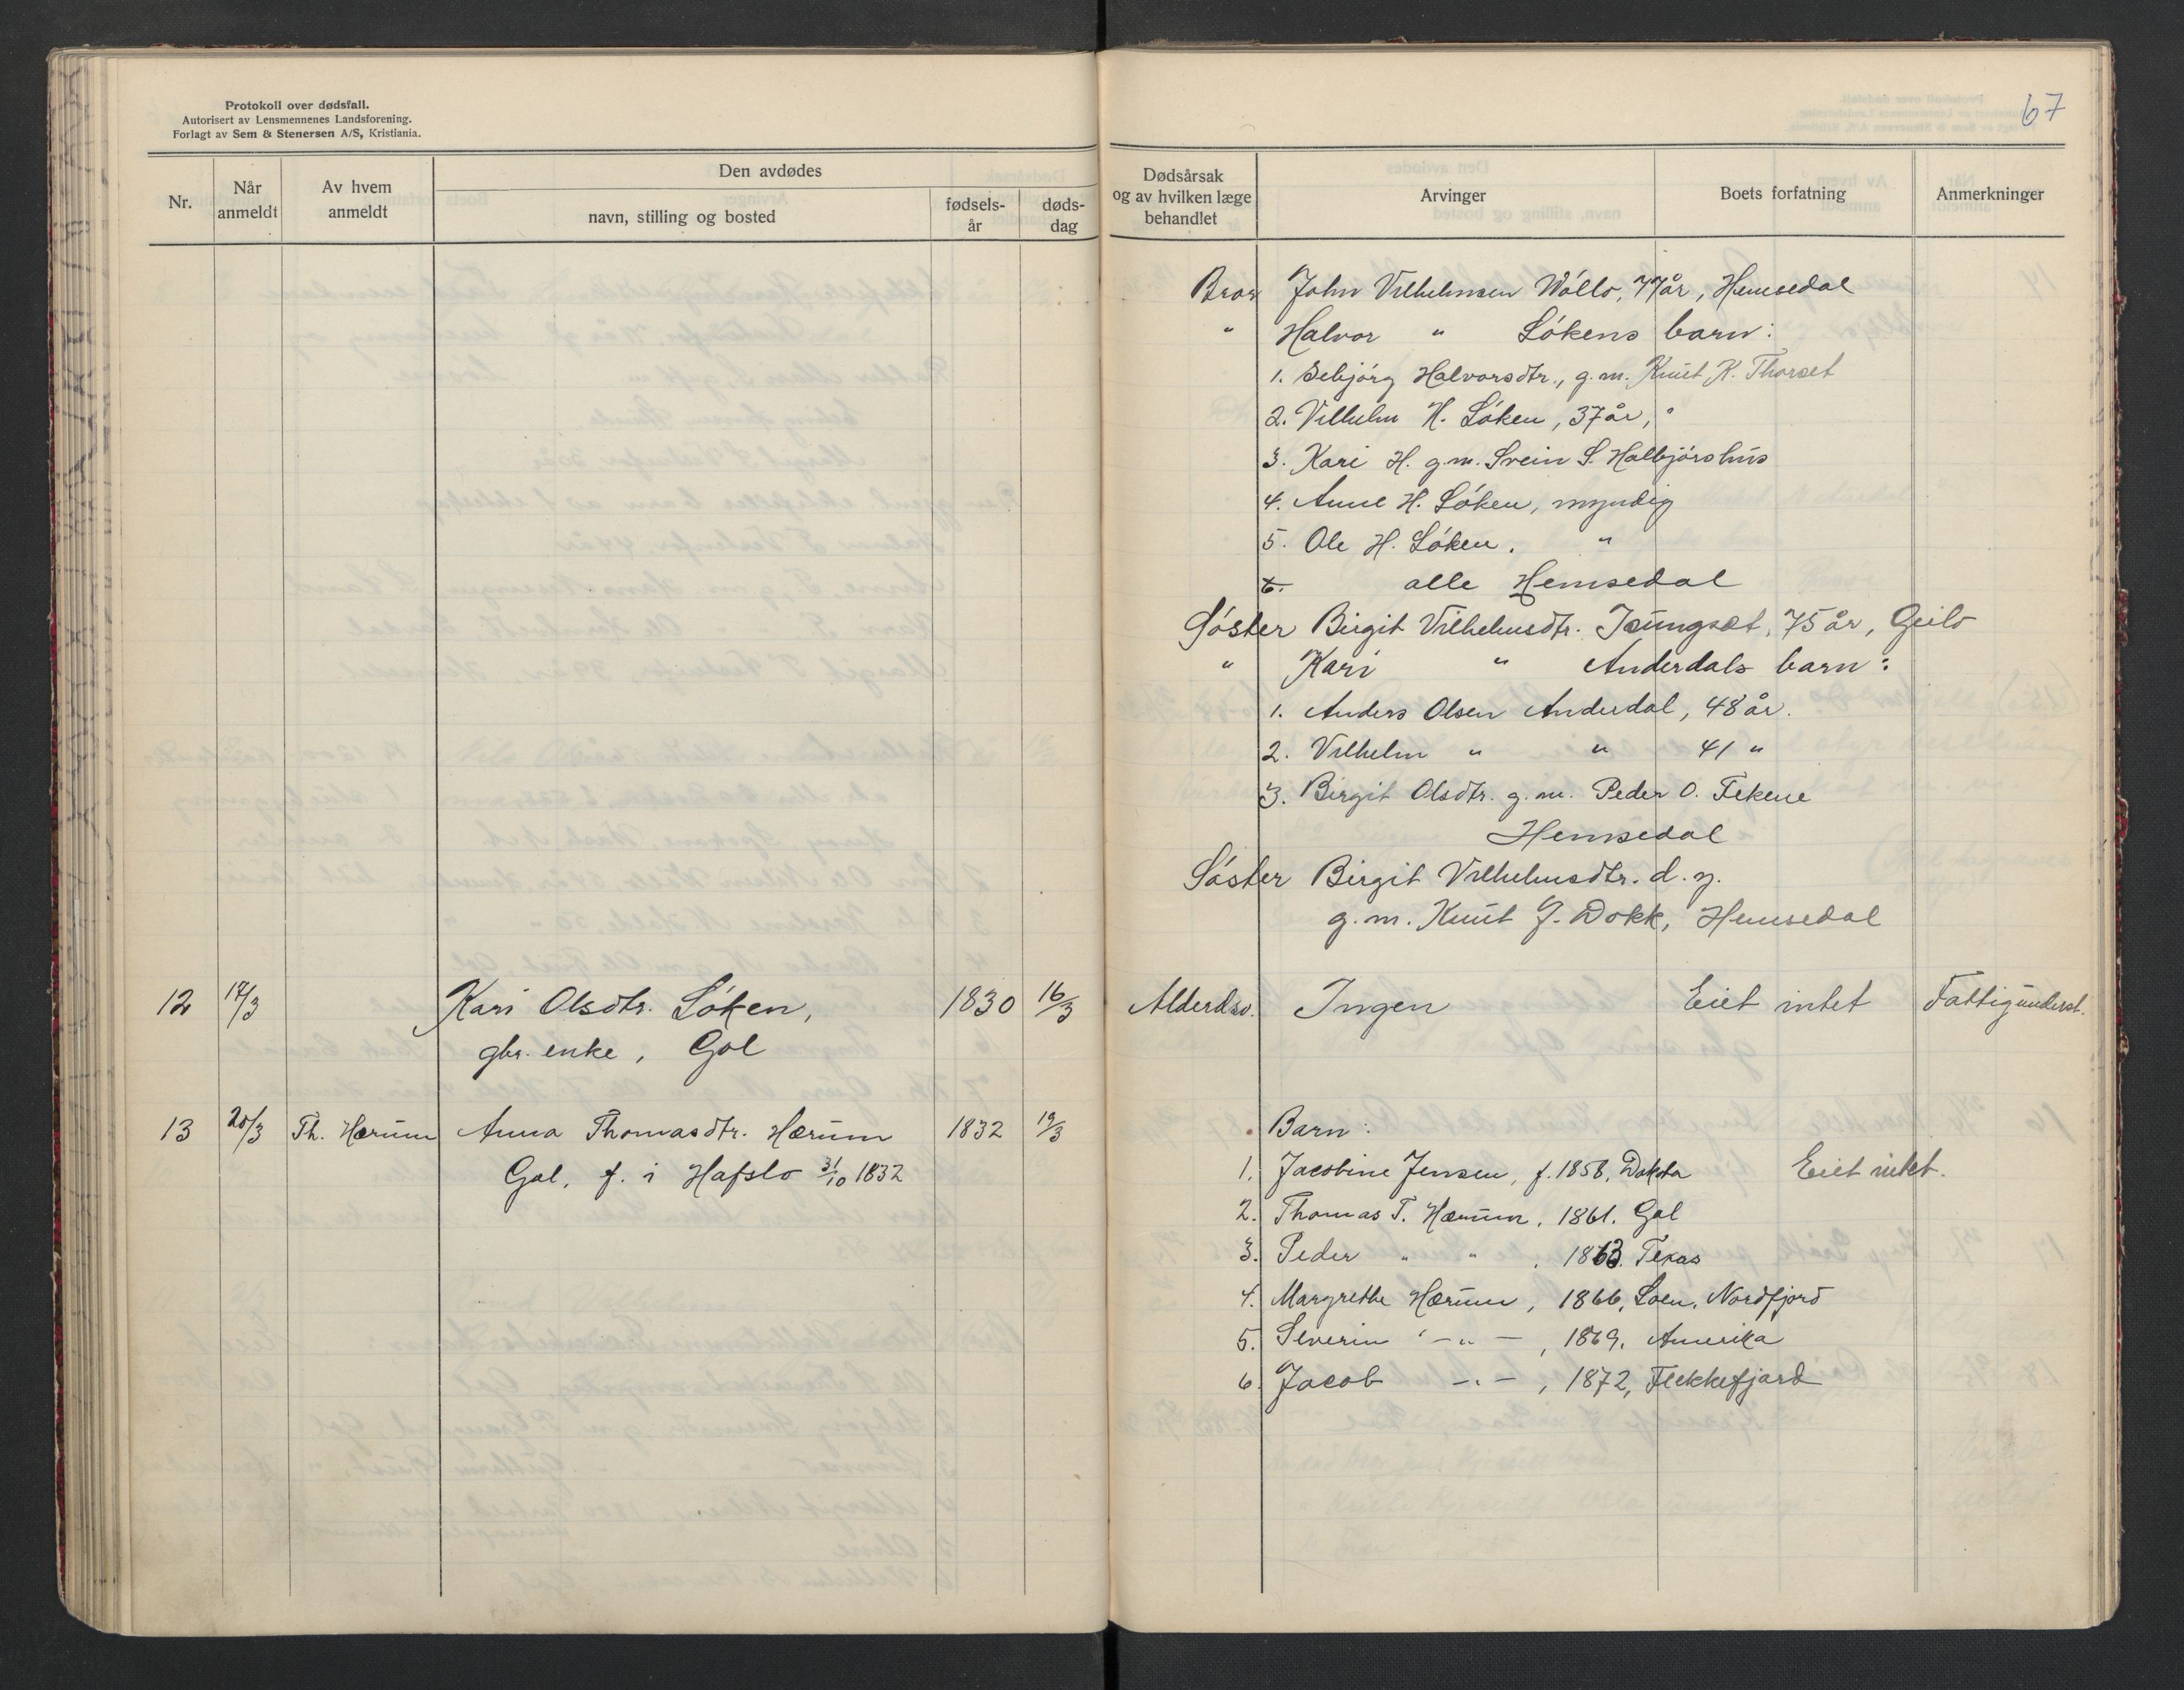 Protokoll over dødsfall.
Autorisert av Lensmennenes Landsforening.
Forlagt av Sem & Stenersen A/S, Kristiania.
67
Nr.
Når anmeldt
Av hvem anmeldt
Den avdødes
navn, stilling og bosted
fødsels-år
døds-dag
Dødsårsak og av hvilken læge behandlet
Arvinger
Boets forfatning
Anmerkninger
Bror John Vilhelmsen Wøllo, 77 år, Hemsedal
" Halvor " Løkens barn:
1. Sebjørg Halvorsdtr., g.m. Knut K. Thorset
2. Vilhelm H. Løken, 37 år, "
3. Kari H. g.m. Svein S. Halbjørshus
4. Anne H. Løken, myndig
5. Ole H. Løken. "
6. alle Hemsedal
Søster Birgit Vilhelmsdtr. 75 år, Geilo
" Kari " Anderdals barn:
1. Anders Olsen Anderdal, 48 år.
2. Vilhelm " " 41 "
3. Birgit Olsdtr. g.m. Peder O. Fekene
Hemsedal
Søster Birgit Vilhelmsdtr. d.y.
g.m. Knut J. Dokk, Hemsedal
12 17/3 Kari Olsdtr. Løken, 1830 16/3 Alderdsv. Ingen Eiet intet Fattigunderst.
gbr. enke, Gol
13 20/3 Th. Hærum Anna Thomasdtr. Hærum 1832 19/3 Barn:
Gol, f. i Hafslo 31/10 1832
1. Jacobine Jensen, f. 1858, Dakota Eiet intet.
2. Thomas T. Hærum, 1861. Gol
3. Peder " " , 1863. Texas
4. Margrethe Hærum, 1866, Loen, Nordfjord
5. Severin - " - , 1869. Amerika
6. Jacob - " - , 1872, Flekkefjord